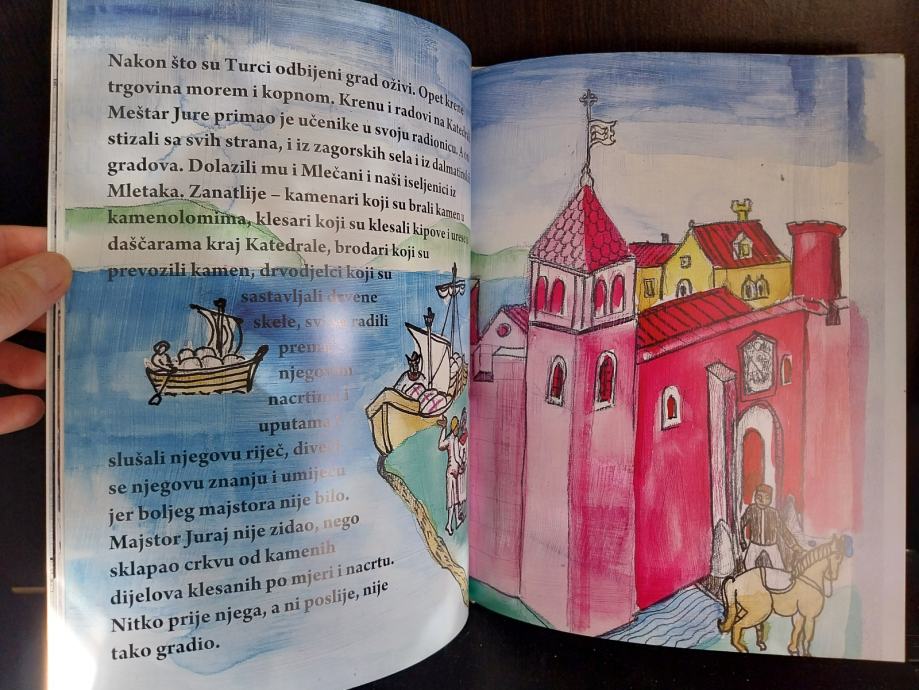 Nakon što su Turci odbijeni grad oživi. Opet krene
trgovina morem i kopnom. Krenu i radovi na
Meštar Jure primao je učenike u svoju radionicu. A
stizali sa svih strana, i iz zagorskih sela i iz
gradova. Dolazili mu i Mlečani i naši iseljenici iz
Mletaka. Zanatlije – kamenari koji su brali kamen u
kamenolomima, klesari koji su klesali kipove i
daščarama kraj Katedrale, brodari koji su
prevozili kamen, drvodjelci koji su
sastavljali drvene
skele, svi su radili
prema
njegovim
nacrtima i
uputama i
slušali njegovu riječ, diveći
se njegovu znanju i umijeću
jer boljeg majstora nije bilo.
Majstor Juraj nije zidao, nego
sklapao crkvu od kamenih
dijelova klesanih po mjeri i nacrtu.
Nitko prije njega, a ni poslije, nije
tako gradio.